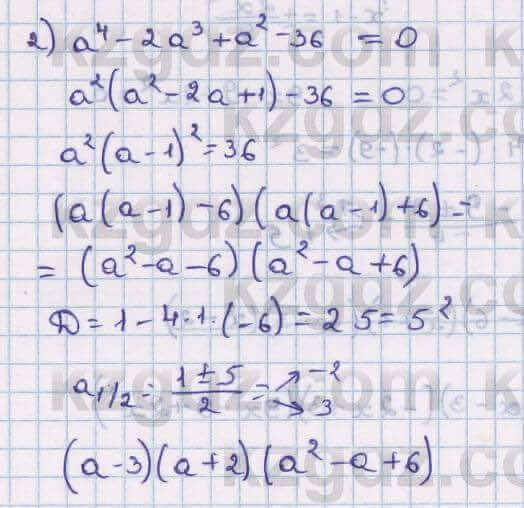 2) a⁴ - 2a³ + a² - 36 = 0
a²(a² - 2a + 1) - 36 = 0
a²(a - 1)² = 36
(a(a - 1) - 6)(a(a - 1) + 6) =
= (a² - a - 6)(a² - a + 6)
D = 1 - 4·1·(-6) = 25 = 5²
a₁/₂ = (1 ± 5)/2 = ↗ -2 ↘ 3
(a - 3)(a + 2)(a² - a + 6)